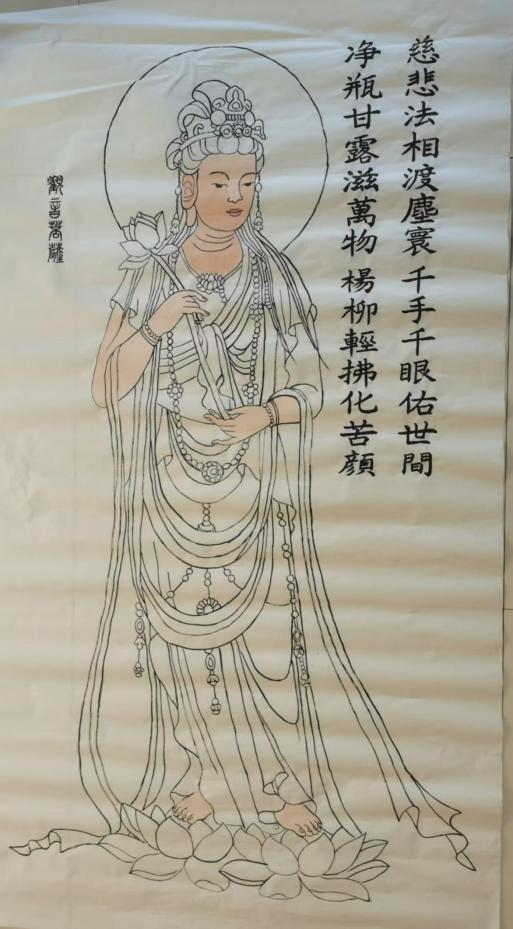 慈悲法相渡塵寰 千手千眼佑世間
净瓶甘露滋萬物 楊柳輕拂化苦顔
觀音菩薩